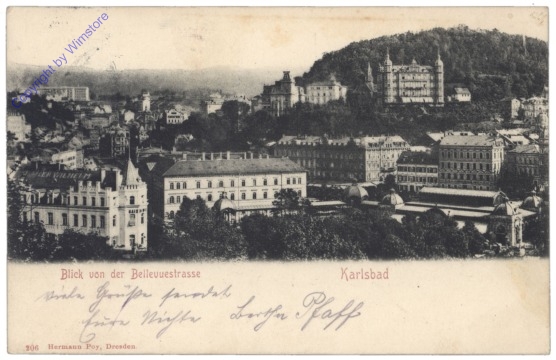 Copyright by Wimstore
Blick von der Bellevuestrasse Karlsbad
viele Grüße sendet
Eure Nichte Bertha Pfaff
206 Hermann Poy, Dresden